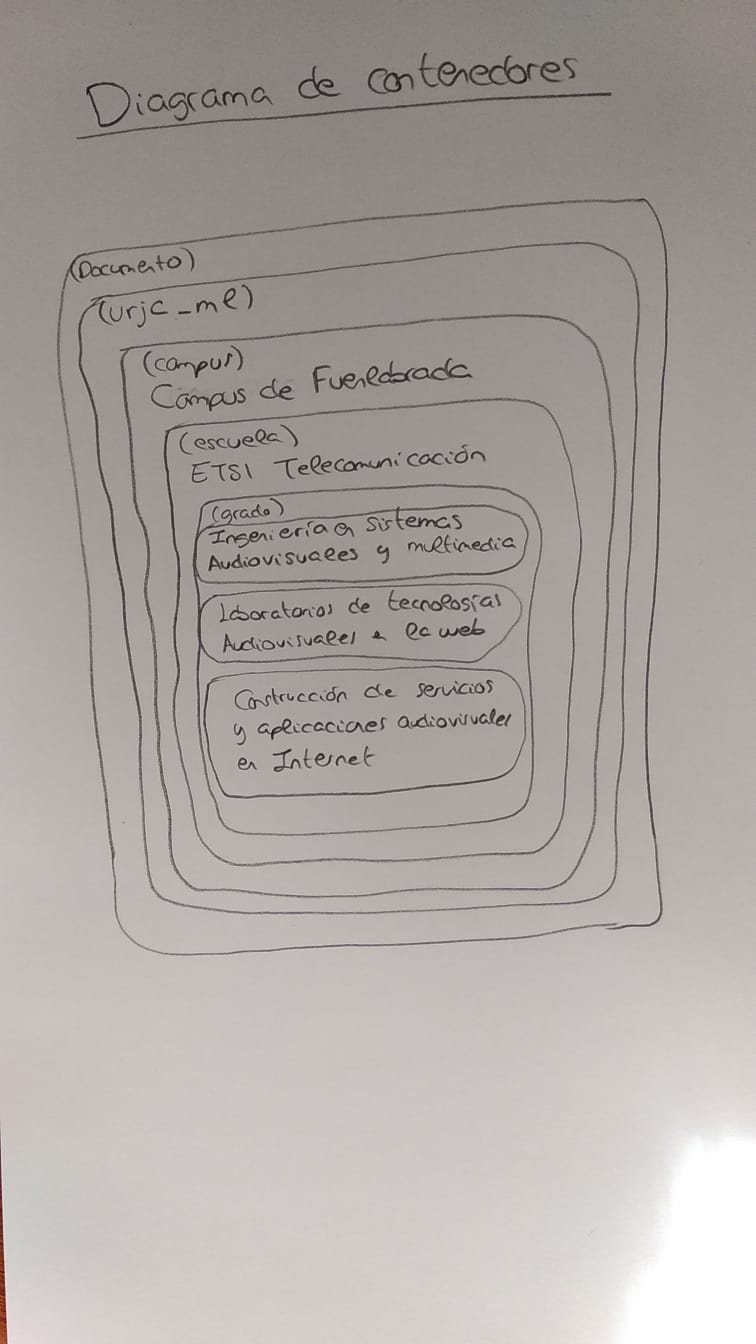 Diagrama de contenedores
(Documento)
(urjc_ml)
(campus)
Campus de Fuenlabrada
(escuela)
ETSI Telecomunicación
(grado)
Ingeniería en sistemas
Audiovisuales y multimedia
Laboratorios de tecnologías
Audiovisuales en la web
Construcción de servicios
y aplicaciones audiovisuales
en Internet